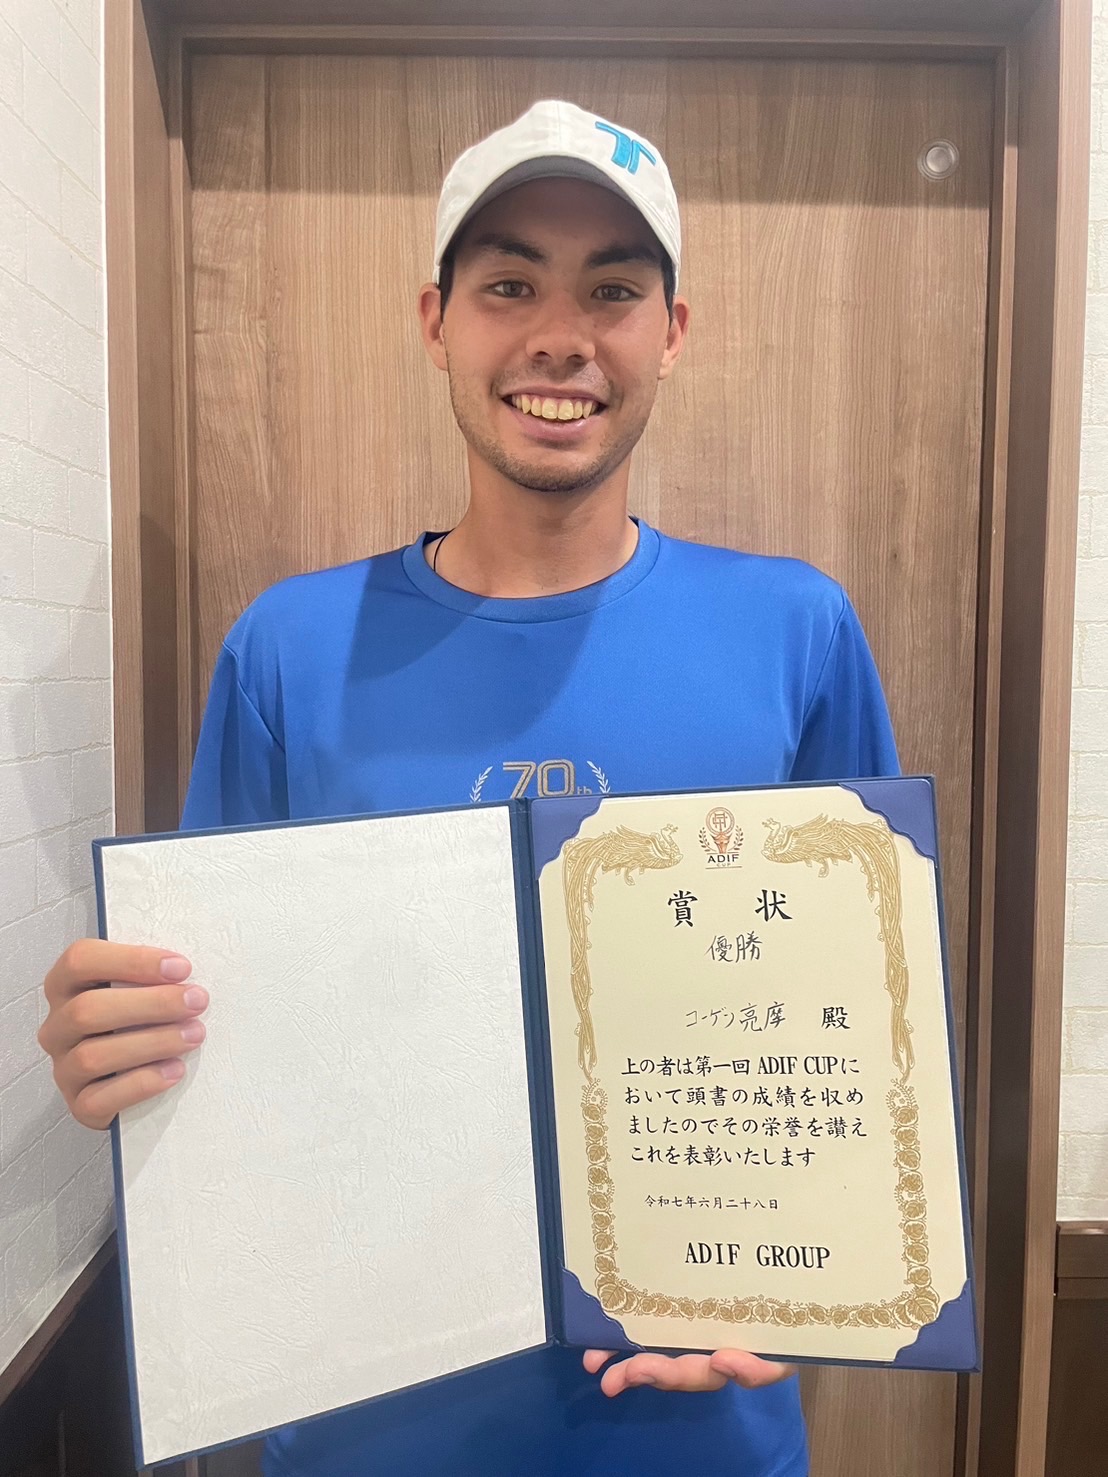 70th
ADIF
CUP
賞 状
優勝
コーゲン亮摩 殿
上の者は第一回 ADIF CUPに
おいて頭書の成績を収め
ましたのでその栄誉を讃え
これを表彰いたします
令和七年六月二十八日
ADIF GROUP